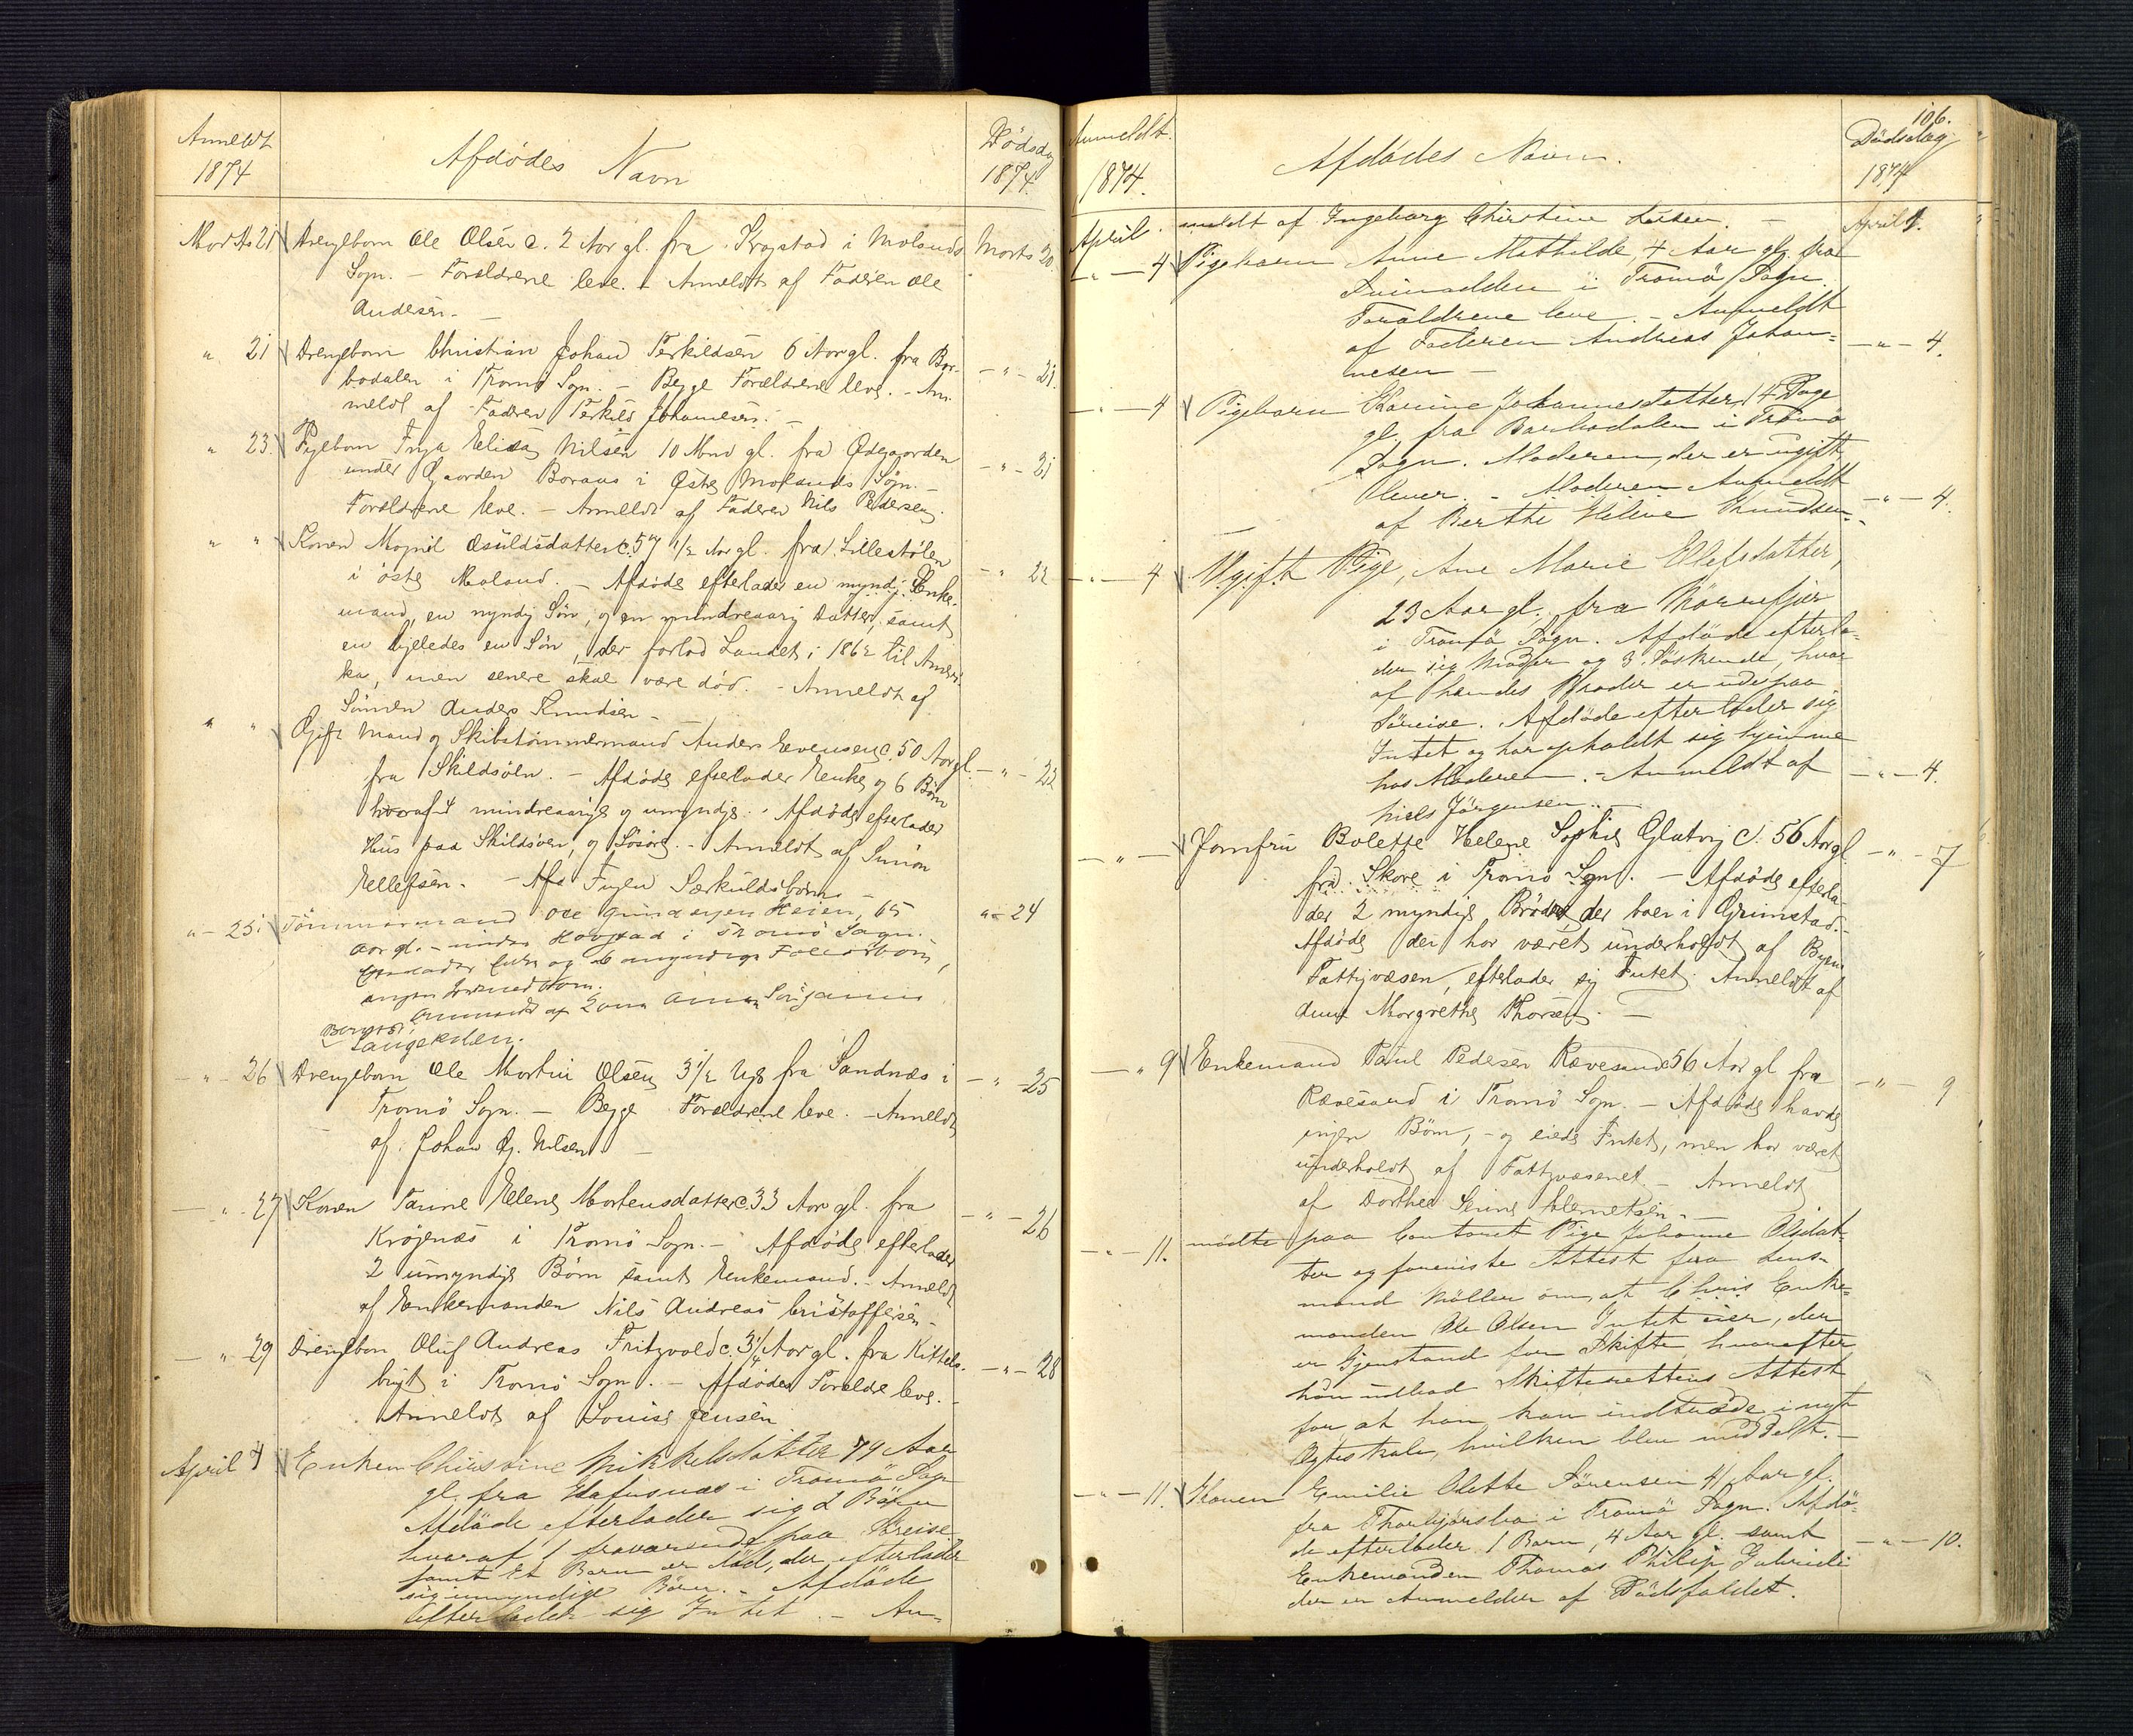 Anmeldt
1874
Afdødes Navn
Dødsdag
1874.
Marts 21 Drengebarn Ole Olsen c. 2 Aar gl. fra Krogstad i Molands Marts 20.
Sogn. - Forældrene leve. - Anmeldt af Faderen Ole
Andersen. -
" 21 Drengebarn Christian Johan Terkildsen 6 Aar gl. fra Bar- - " - 21.
bodalen i Tromø Sogn. - Begge Forældrene leve. - An-
meldt af Faderen Terkild Johannesen. -
" 23. Pigebarn Inga Elisa Nilsen 10 Mnd gl. fra Ødegaarden - " - 21
under Gaarden Boraas i Østre Molands Sogn. -
Forældrene leve. - Anmeldt af Faderen Nils Pedersen.
" " Konen Magnil Osuldsdatter c. 57 1/2 Aar gl. fra Lillestølen - " 22
i østre Moland. - Afdøde efterlader en myndig Enke-
mand, en myndig Søn, og en mindreaarig Datter, samt
en ligeledes en Søn, der forlod Landet i 1862 til Ameri-
ka, men senere skal være død. - Anmeldt af
Sønnen Anders Knudsen -
" " Gift Mand og Skibstømmermand Anders Evensen c. 50 Aar gl. - " - 22
fra Skildsøen. - Afdøde efterlader Enke og 6 Børn
hvoraf 4 mindreaarige og umyndige. - Afdøde efterlader
Hus paa Skildsøen, og Løsøre. - Anmeldt af Simon
Ellefsen. - Afd Ingen Særkuldsbørn -
" - 25 Tømmermand Ole Heien, 65 " - 24
Aar gl. - under Hovstad i Tromø Sogn.
Efterlader Enke og 6 myndige Fællesbørn,
ingen
Anmeldt af Anna
Langekilen.
" - 26 Drengebarn Ole Martin Olsen 3 1/2 Uge fra Sandnæs i - " - 25
Tromø Sogn. - Begge Forældrene leve. - Anmeldt
af Johan Gj. Nilsen. -
- " - 27 Konen Tarine Elene Mortensdatter c. 33 Aar gl. fra - " - 26
Krøjenæs i Tromø Sogn. - Afdøde efterlader
2 umyndige Børn samt Enkemand. - Anmeldt
af Enkemanden Nils Andreas Cristoffersen -
- " - 29 Drengebarn Oluf Andreas Fritzvold c. 3 1/4 Aar gl. fra Kittels- - " - 28
bugt i Tromø Sogn. - Afdødes Forældre leve. -
Anmeldt af Louise Jensen
April 4 Enken Christine Mikkelsdatter 79 Aar
gl. fra Hafusnæs i Tromø Sogn
Afdøde efterlader sig 2 Børn
hvoraf 1 fraværende paa Søreise
samt Et Barn er død, der efterlader
sig umyndige Børn. - Afdøde
efterlader sig Intet. - An-
106.
Anmeldt.
1874.
Afdødes Navn.
Dødsdag
1874
April. meldt af Ingeborg Christine Larsen. - April 1.
- " - 4 Pigebarn Anne Mathilde, 4 Aar gl. fra
i Tromø Sogn.
Forældrene leve. - Anmeldt
af Faderen Andreas Johan= - " - 4.
nesen -
- " - 4 Pigebarn Karine Johannesdatter, 14 Dage
gl. fra Barbodalen i Tromø
Sogn. Moderen, der er ugift,
lever. - Moderen Anmeldt
af Berthe Heline Knudsen. - " - 4.
- " - 4 Ugift Pige, Ane Marie Ellefsdatter,
23 Aar gl. fra Narrefjær
i Tromø Sogn. Afdøde efterla-
der sig Moder og 3 Søskende, hvor
af hendes Broder er ude paa
Søreise. Afdøde efterlader sig
Intet og har opholdt sig hjemme
hos Moderen. - Anmeldt af - " - 4.
Niels Jørgensen. -
- " - Jomfru Bolette Helene Sophie Glatvig c. 56 Aar gl. - " - 7
fra Skare i Tromø Sogn. - Afdøde efterla-
der 2 myndige Brødre der boer i Grimstad. -
Afdøde der har været underholdt af Byens
Fattigvæsen, efterlader sig Intet. Anmeldt af
Anne Margrethe Thorsen. -
- " 9 Enkemand Paul Pedersen Rævesand 56 Aar gl fra - " - 9
Rævesand i Tromø Sogn. - Afdøde havde
ingen Børn, - og eiede Intet, men har været
underholdt af Fattigvæsenet. - Anmeldt
af Dorthea Severine Clemetsen. -
- " - 11. mødte paa Contoret Pige Johanne Olsdat-
ter og foreviste Attest fra Lens-
mand Møller om, at hvis Enke-
manden Ole Olsen Intet eier, der
er Gjenstand for Skifte, hvorefter
hun udbad Skifterettens Attest
for, at han kan indtræde i nyt
Ægteskab, hvilken blev meddelt. -
- " - 11. Konen Emilie Olette Sørensen 41 Aar gl.
fra Thorbjørsbo i Tromø Sogn. Afdø-
de efterlader 1 Barn, 4 Aar gl. samt - " - 10.
Enkemanden Thomas Philip Gabrieli
der er Anmelder af Dødsfaldet.